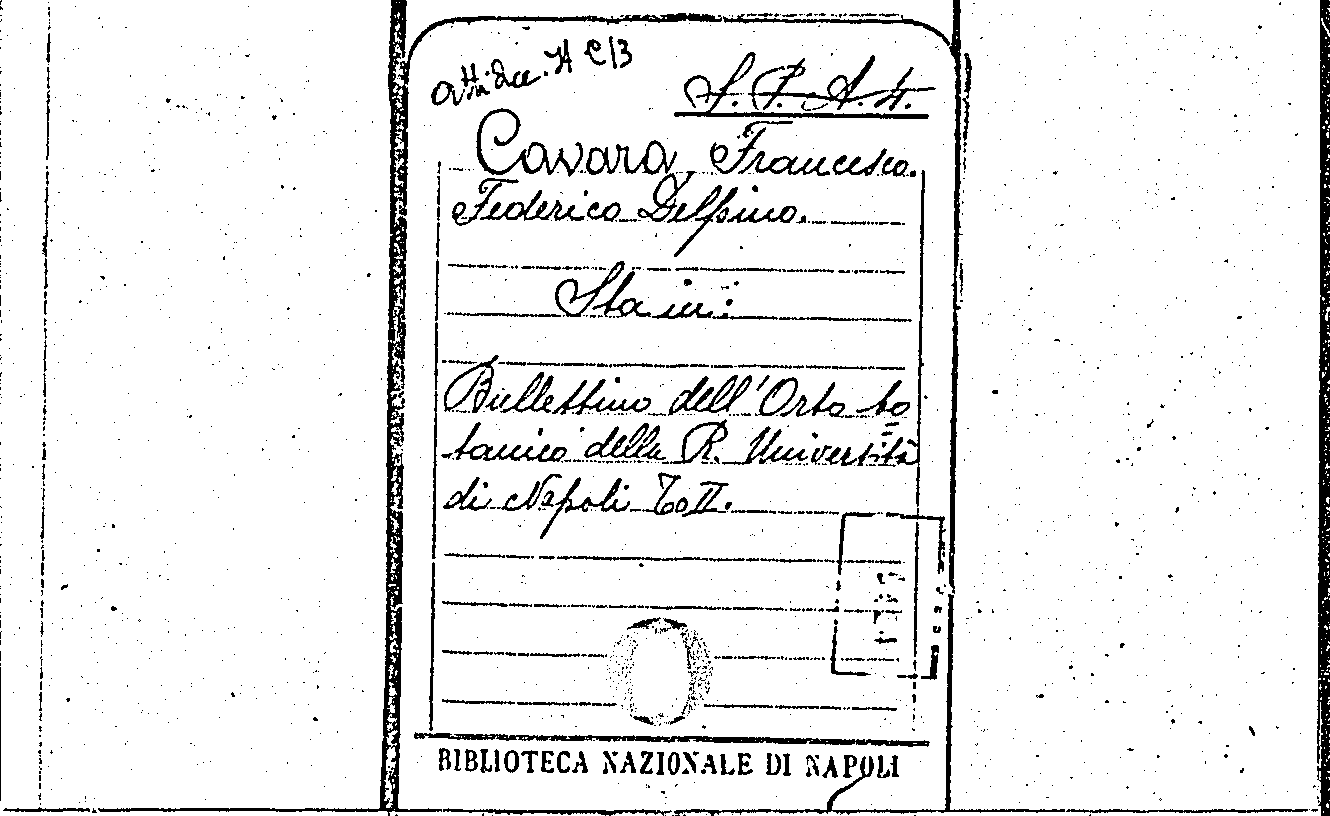 Atti Acc. H C/3
S. P. A. 4.
Cavara, Francesco.
Federico Delpino.
Sta in:
Bullettino dell'Orto bo
tanico della R. Università
di Napoli To II.
BIBLIOTECA NAZIONALE DI NAPOLI